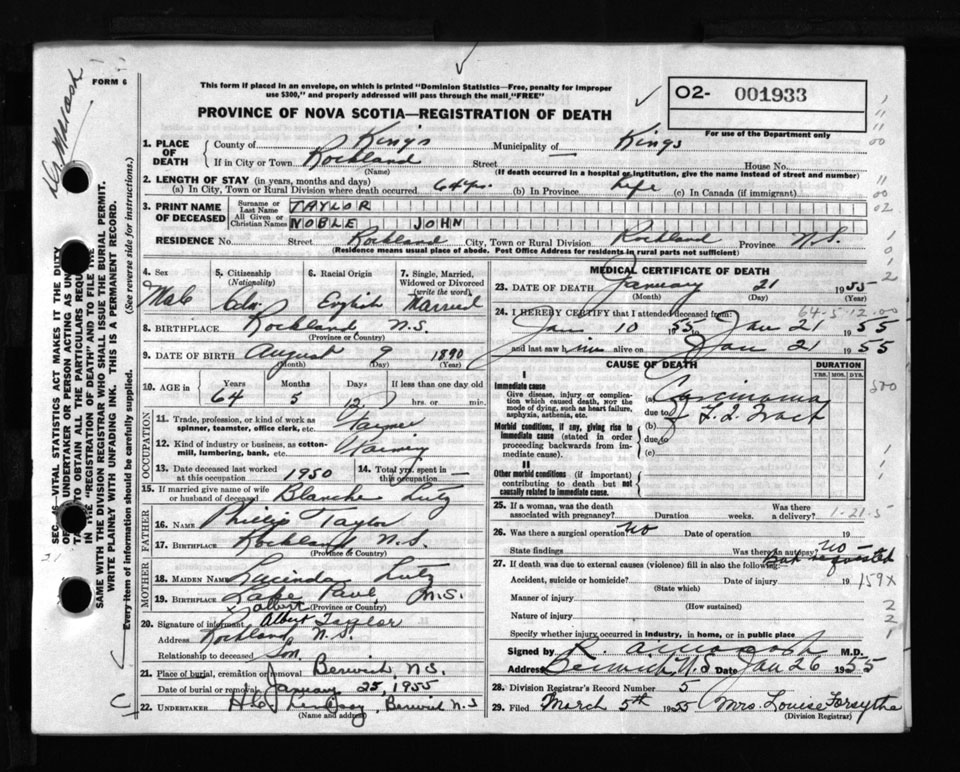 FORM 6
This form if placed in an envelope, on which is printed "Dominion Statistics—Free, penalty for improper
use $300," and properly addressed will pass through the mail "FREE"
PROVINCE OF NOVA SCOTIA—REGISTRATION OF DEATH
O2- 001933
For use of the Department only
1. PLACE OF DEATH
County of Kings Municipality of Kings
If in City or Town Rockland Street House No.
(Name) (If death occurred in a hospital or institution, give the name instead of street and number)
2. LENGTH OF STAY (in years, months and days)
(a) In City, Town or Rural Division where death occurred 64 yrs. (b) In Province Life (c) In Canada (if immigrant)
3. PRINT NAME OF DECEASED
Surname or Last Name TAYLOR
All Given or Christian Names NOBLE JOHN
RESIDENCE No. Street Rockland City, Town or Rural Division Rockland Province N.S.
(Residence means usual place of abode. Post Office Address for residents in rural parts not sufficient)
4. Sex Male
5. Citizenship (Nationality) Cdn
6. Racial Origin English
7. Single, Married, Widowed or Divorced (write the word) Married
8. BIRTHPLACE Rockland N.S.
(Province or Country)
9. DATE OF BIRTH August 9 1890
(Month) (Day) (Year)
10. AGE in Years Months Days If less than one day old
64 5 12 hrs. or min.
OCCUPATION
11. Trade, profession, or kind of work as spinner, teamster, office clerk, etc. Farmer
12. Kind of industry or business, as cotton-mill, lumbering, bank, etc. Farming
13. Date deceased last worked at this occupation 1950
14. Total yrs. spent in this occupation —
15. If married give name of wife or husband of deceased Blanche Lutz
FATHER
16. NAME Phillip Taylor
17. BIRTHPLACE Rockland N.S.
(Province or Country)
MOTHER
18. MAIDEN NAME Lucinda Lutz
19. BIRTHPLACE Lake Paul, N.S.
(Province or Country)
20. Signature of informant Albert Taylor
Address Rockland N.S.
Relationship to deceased Son.
21. Place of burial, cremation or removal Berwick N.S.
Date of burial or removal January 25, 1955
22. UNDERTAKER Berwick N.S
(Name and address)
MEDICAL CERTIFICATE OF DEATH
23. DATE OF DEATH January 21 1955
(Month) (Day) (Year)
64-5-12.00
24. I HEREBY CERTIFY that I attended deceased from:
Jan 10 1955 to Jan 21 1955
and last saw him alive on Jan 21 1955
CAUSE OF DEATH DURATION
YRS. MOS. DYS.
I
Immediate cause
Give disease, injury or complication which caused death, not the mode of dying, such as heart failure, asphyxia, asthenia, etc.
(a) Carcinoma
due to G. I. Tract
Morbid conditions, if any, giving rise to immediate cause (stated in order proceeding backwards from immediate cause).
(b)
due to
(c)
II
Other morbid conditions (if important) contributing to death but not causally related to immediate cause.
25. If a woman, was the death associated with pregnancy? Duration weeks. Was there a delivery?
1-21-5
26. Was there a surgical operation? No Date of operation 19
State findings Was there an autopsy? No
27. If death was due to external causes (violence) fill in also the following:
Accident, suicide or homicide? Date of injury 19
(State which)
159X
Manner of injury
(How sustained)
Nature of injury
Specify whether injury occurred in industry, in home, or in public place
Signed by M.D.
Address Berwick N.S Date Jan 26 1955
28. Division Registrar's Record Number 5
29. Filed March 5th 1955 Mrs. Louise Forsythe
(Division Registrar)
SEC. 16—VITAL STATISTICS ACT MAKES IT THE DUTY
IN THE "REGISTRATION OF DEATH" AND TO FILE THE
SAME WITH THE DIVISION REGISTRAR WHO SHALL ISSUE THE BURIAL PERMIT.
WRITE PLAINLY WITH UNFADING INK. THIS IS A PERMANENT RECORD.
Every item of information should be carefully supplied. (See reverse side for instructions.)